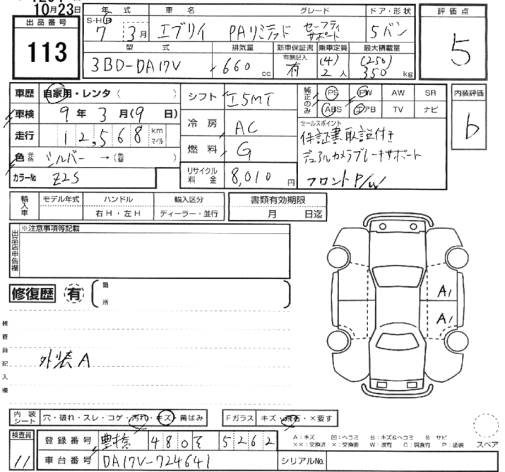 10月23日
出品番号
113
年 式 車 名 グレード ドア・形状 評価点
S・H・R
7年 3月 エブリイ PAリミテッド セーフティサポート 5バン 5
型 式 排気量 新車保証書 乗定員 最大積載量
3BD-DA17V 660 cc 有 (4) 2人 (250) 350 kg
車歴 自家用・レンタ( )
車検 9年3月(9)日
走行 12,568 km マイル
色 シルバー →( )
カラーNo. Z2S
シフト I5MT
冷房 AC
燃料 G
リサイクル料金 8,010 円
純正品のみ
PS PW AW SR
ABS エアB TV ナビ
セールスポイント
保証書取説付き
デュアルカメラブレーキサポート
フロントP/W
内装評価
b
輸入車 モデル年式 ハンドル 輸入区分
右H・左H ディーラー・並行
書類有効期限
月 日迄
出品店申告欄
※注意事項等記載
修復歴 有 ( 箇所
検査員記入欄
外装A
A1
A1
内装シート 穴・破れ・スレ・コゲ・汚れ・キズ・黄ばみ
Fガラス キズ・飛石・×要す
A:キズ U:ヘコミ B:キズ&ヘコミ S:サビ
XX:交換済 X:交換要 W:波有 C:腐食有 P:塗装
スペア
検査員 11
登録番号 豊橋 480 う 5262
車台番号 DA17V-724641
シリアルNo.